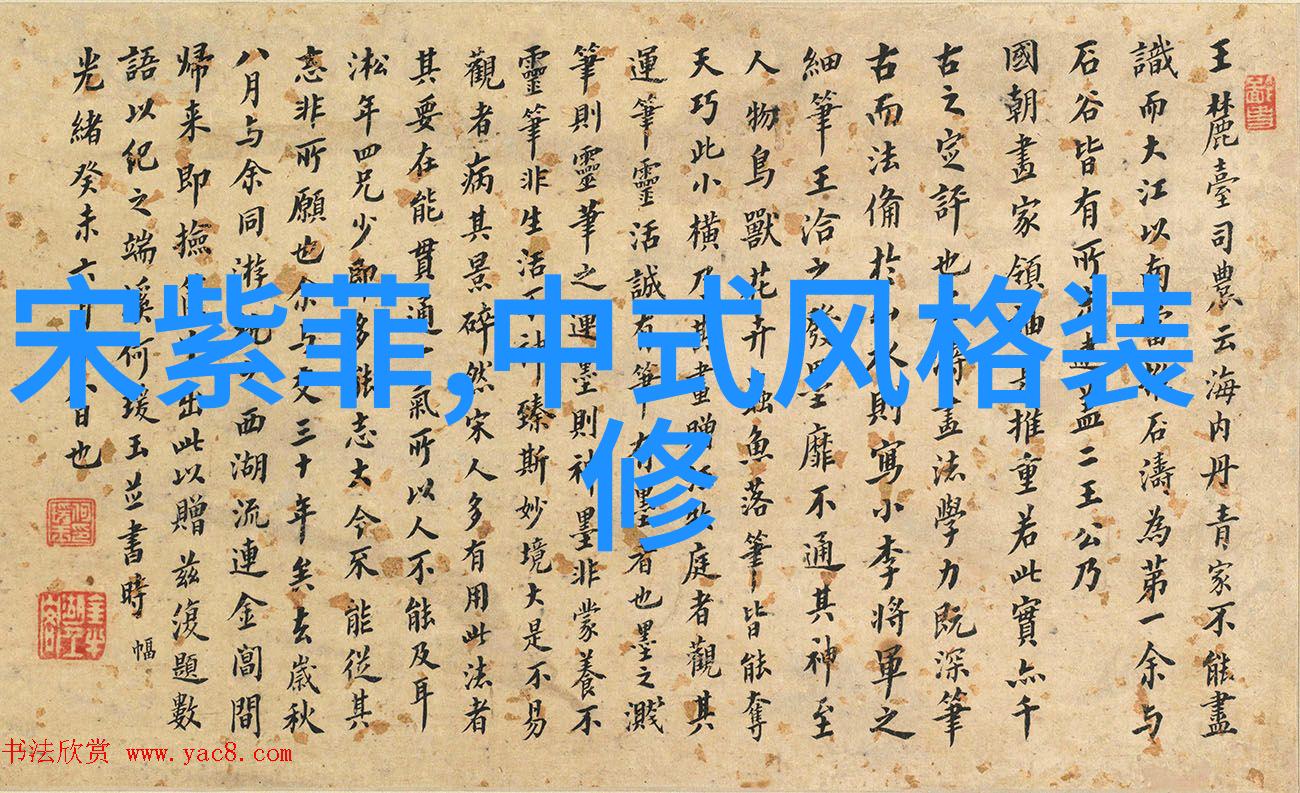 王麓臺司農云海内丹青家不能盡
識而大江以南石濤為第一余与
石谷皆有所二王公乃
國朝畫家領袖推重若此實亦千
古之定評也畫法學力既深筆
古而法備於水則寫小李將軍之
細筆王洽之潑墨靡不通其神至
人物鳥獸花卉蟲魚落筆皆能奪
天巧此小橫乃其畫贈庭者觀其
運筆靈活誠有筆有墨者也墨之濺
筆則靈筆之運墨則神墨非蒙養不
靈筆非生活不神臻斯妙境大是不易
觀者病其景碎然宋人多有用此法者
其要在能貫通一氣所以人不能及耳
淞年四兄少即多能志今不能從其
志非所願也余与交三十年矣去歲秋
八月与余同游西湖流連金閶間
歸来即撿出此以贈茲復題數
語以紀之端溪何瑗玉並書時
光緒癸未六月日也
幅
宋紫菲,中式风格装
修
书法欣赏 www.yac8.com